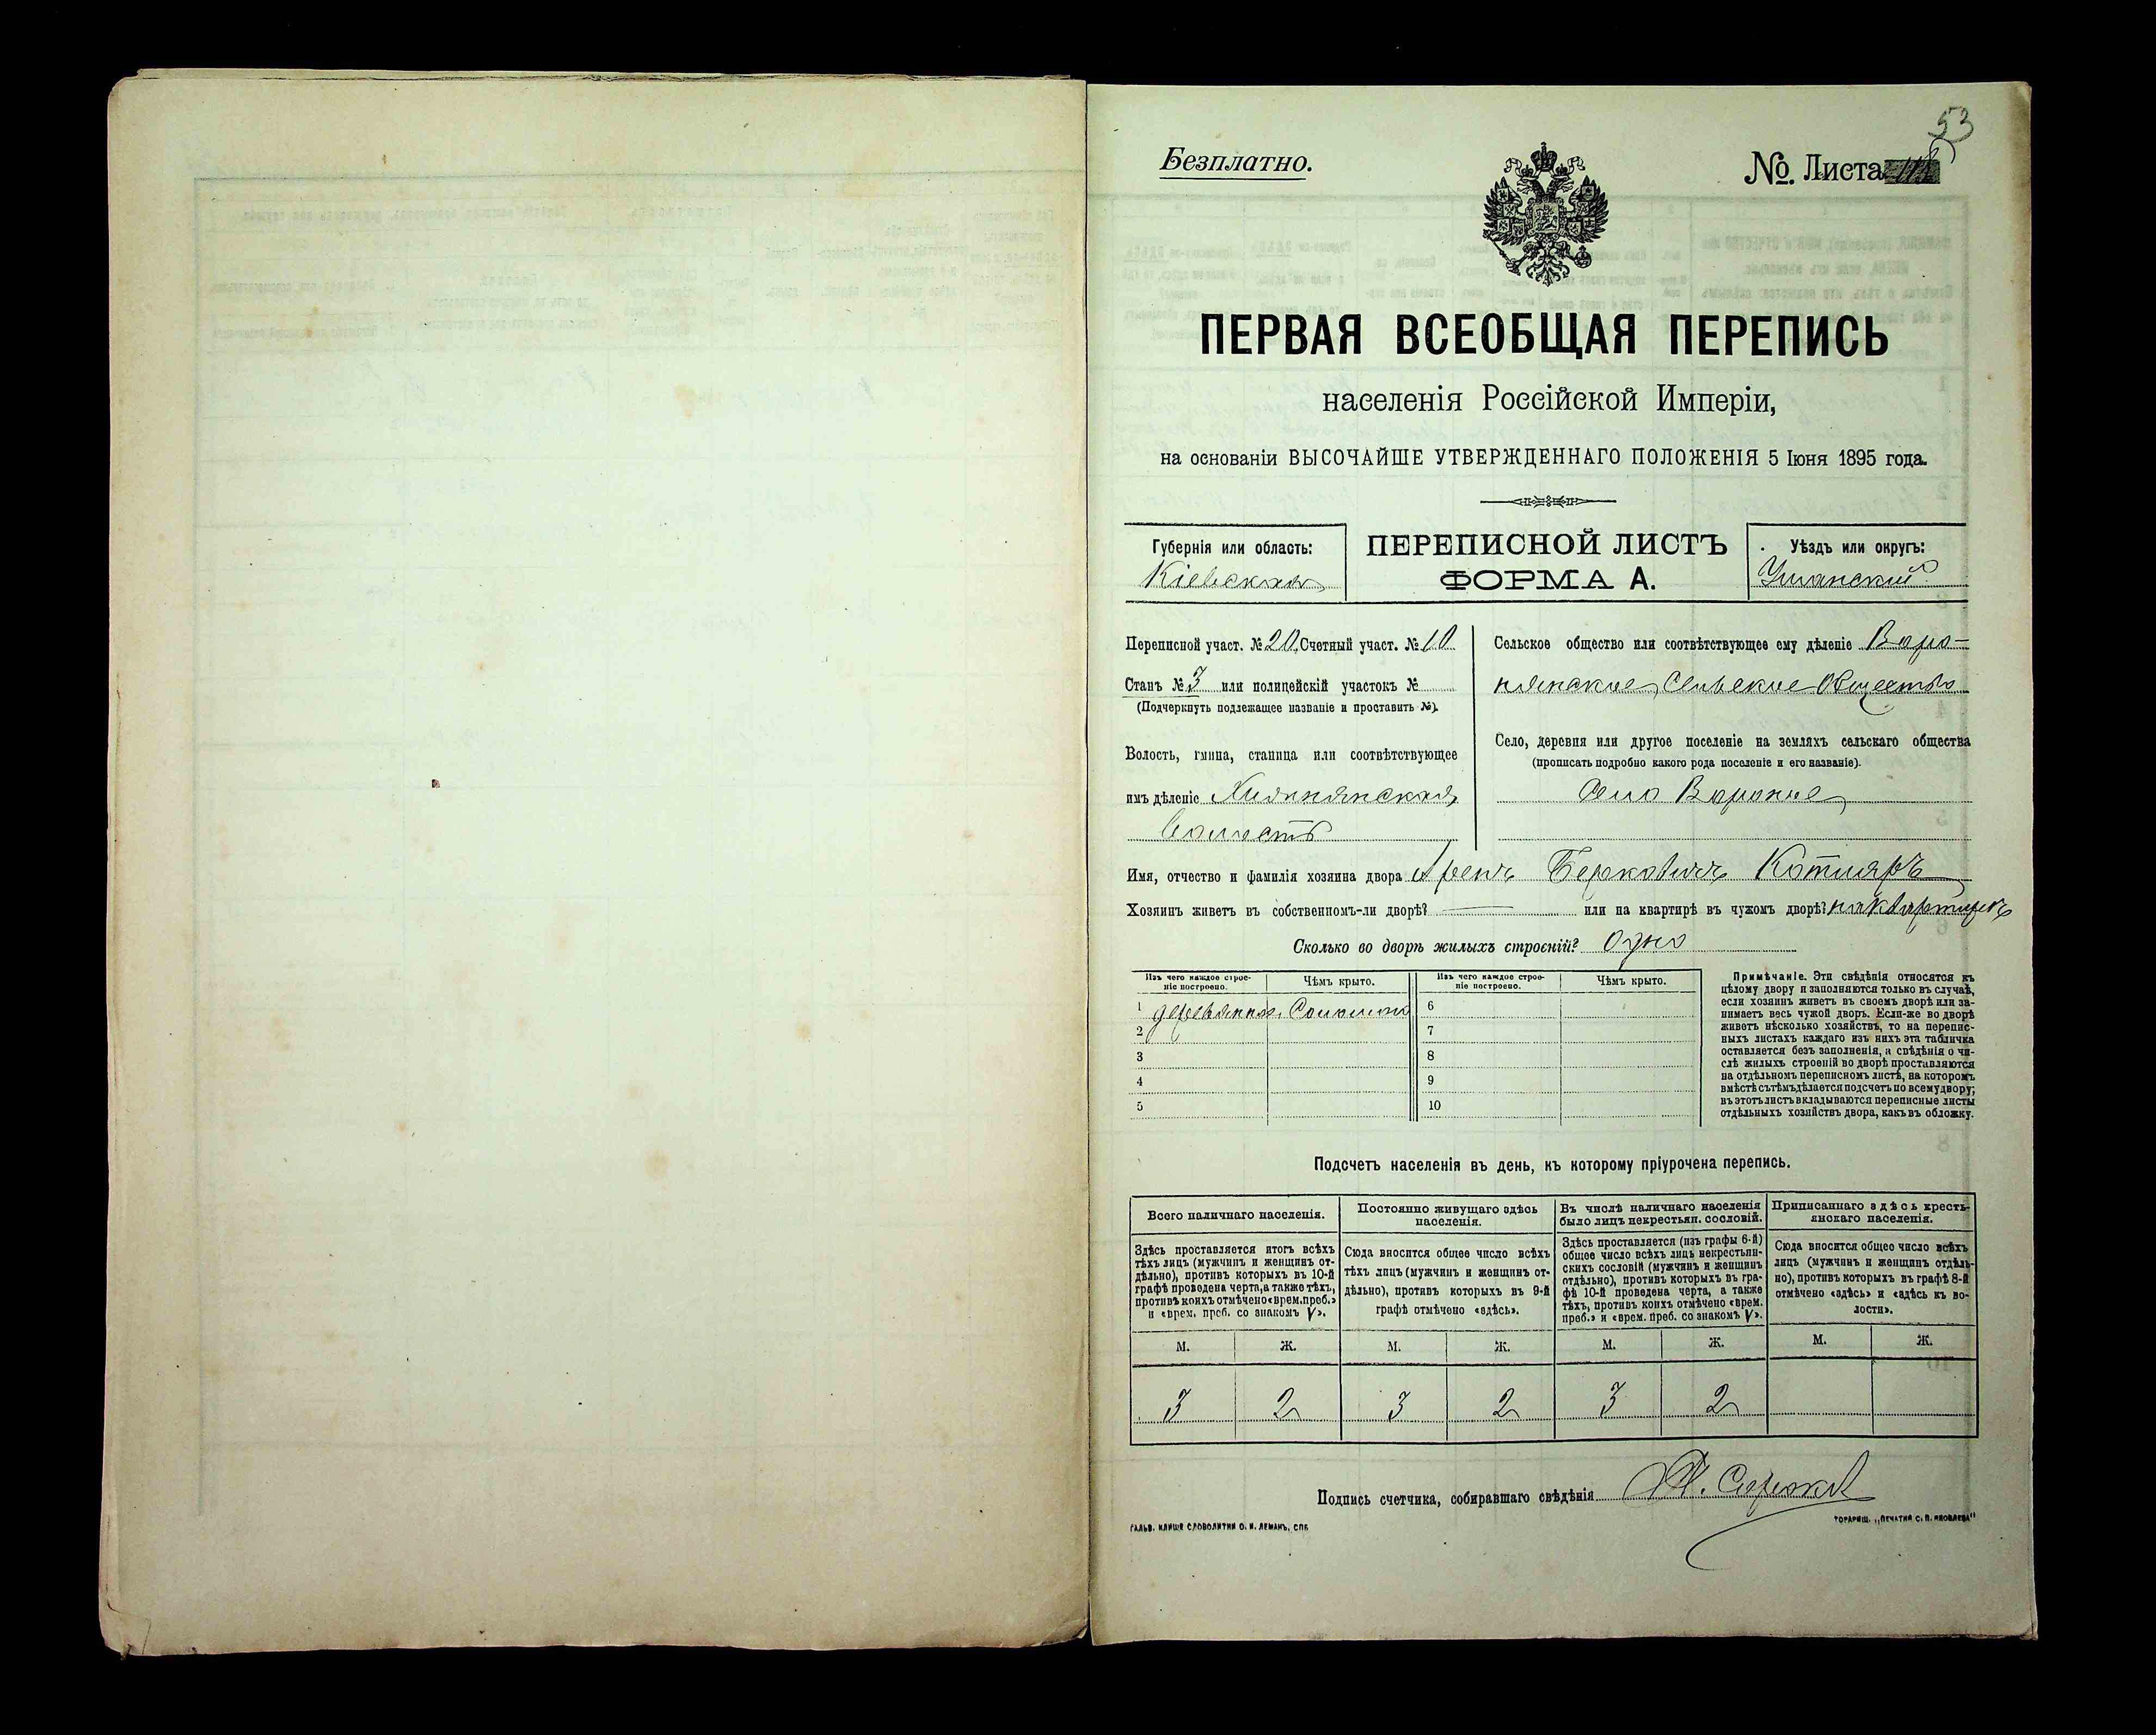 53
Безплатно.
№. Листа
ПЕРВАЯ ВСЕОБЩАЯ ПЕРЕПИСЬ
населенія Россійской Имперіи,
на основаніи ВЫСОЧАЙШЕ УТВЕРЖДЕННАГО ПОЛОЖЕНІЯ 5 Іюня 1895 года.
Губернія или область:
Кіевская
ПЕРЕПИСНОЙ ЛИСТЪ
ФОРМА А.
Уѣздъ или округъ:
Уманскій
Переписной участ. № 20. Счетный участ. № 10
Станъ № 3 или полицейскій участокъ №
(Подчеркнуть подлежащее названіе и проставить №).
Волость, гмина, станица или соотвѣтствующее
имъ дѣленіе
волость
Сельское общество или соотвѣтствующее ему дѣленіе Воро-
нянское сельское общество
Село, деревня или другое поселеніе на земляхъ сельскаго общества
(прописать подробно какого рода поселеніе и его названіе).
село Вороное
Имя, отчество и фамилія хозяина двора Арепъ Берковичъ Котляръ
Хозяинъ живетъ въ собственномъ-ли дворѣ? — или на квартирѣ въ чужомъ дворѣ? на квартирѣ
Сколько во дворѣ жилыхъ строеній? одно
Изъ чего каждое строе-
ніе построено.
Чѣмъ крыто.
Изъ чего каждое строе-
ніе построено.
Чѣмъ крыто.
1 деревянное Соломою 6
2 7
3 8
4 9
5 10
Примѣчаніе. Эти свѣдѣнія относятся къ
цѣлому двору и заполняются только въ случаѣ,
если хозяинъ живетъ въ своемъ дворѣ или за-
нимаетъ весь чужой дворъ. Если-же во дворѣ
живетъ нѣсколько хозяйствъ, то на перепис-
ныхъ листахъ каждаго изъ нихъ эта табличка
оставляется безъ заполненія, а свѣдѣнія о чи-
слѣ жилыхъ строеній во дворѣ проставляются
на отдѣльномъ переписномъ листѣ, на которомъ
вмѣстѣ съ тѣмъ дѣлается подсчетъ по всему двору;
въ этотъ листъ вкладываются переписные листы
отдѣльныхъ хозяйствъ двора, какъ въ обложку.
Подсчетъ населенія въ день, къ которому пріурочена перепись.
Всего наличнаго населенія.
Здѣсь проставляется итогъ всѣхъ
тѣхъ лицъ (мужчинъ и женщинъ от-
дѣльно), противъ которыхъ въ 10-й
графѣ проведена черта, а также тѣхъ,
противъ коихъ отмѣчено «врем. преб.»
и «врем. преб. со знакомъ V».
Постоянно живущаго здѣсь
населенія.
Сюда вносится общее число всѣхъ
тѣхъ лицъ (мужчинъ и женщинъ от-
дѣльно), противъ которыхъ въ 9-й
графѣ отмѣчено «здѣсь».
Въ числѣ наличнаго населенія
было лицъ некрестьян. сословій.
Здѣсь проставляется (изъ графы 6-й)
общее число всѣхъ лицъ некрестьян-
скихъ сословій (мужчинъ и женщинъ
отдѣльно), противъ которыхъ въ гра-
фѣ 10-й проведена черта, а также
тѣхъ, противъ коихъ отмѣчено «врем.
преб.» и «врем. преб. со знакомъ V».
Приписаннаго здѣсь кресть-
янскаго населенія.
Сюда вносится общее число всѣхъ
лицъ (мужчинъ и женщинъ отдѣль-
но), противъ которыхъ въ графѣ 8-й
отмѣчено «здѣсь» и «здѣсь къ во-
лости».
М. Ж. М. Ж. М. Ж. М. Ж.
3 2 3 2 3 2
Подпись счетчика, собиравшаго свѣдѣнія
ГАЛЬВ. КЛИШЕ СЛОВОЛИТНИ О. И. ЛЕМАНЪ, СПБ
ТОВАРИЩ. „ПЕЧАТНЯ С. П. ЯКОВЛЕВА"